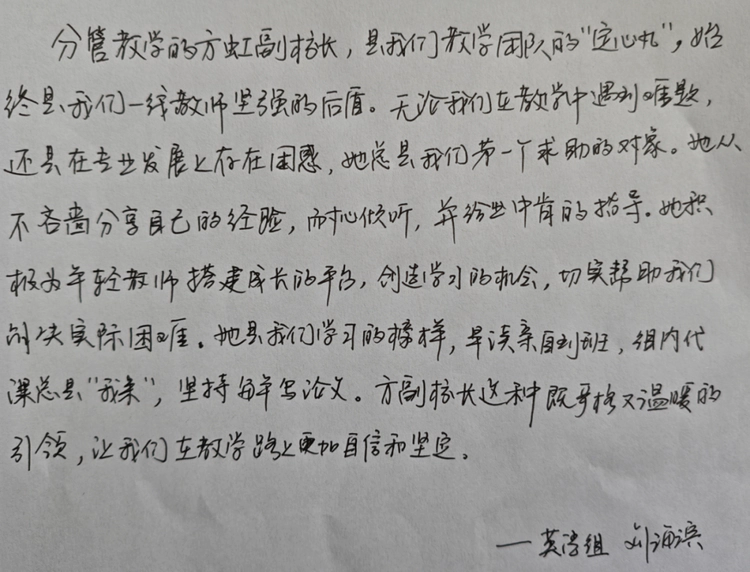 分管教学的方虹副校长，是我们教学团队的“定心丸”，始
终是我们一线教师坚强的后盾。无论我们在教学中遇到难题，
还是在专业发展上存在困惑，她总是我们第一个求助的对象。她从
不吝啬分享自己的经验，耐心倾听，并给出中肯的指导。她积
极为年轻教师搭建成长的平台，创造学习的机会，切实帮助我们
解决实际困难。她是我们学习的榜样，早读亲自到班，组内代
课总是“我来”，坚持每年写论文。方副校长这种既严格又温暖的
引领，让我们在教学路上更加自信和坚定。
——英语组 刘海滨